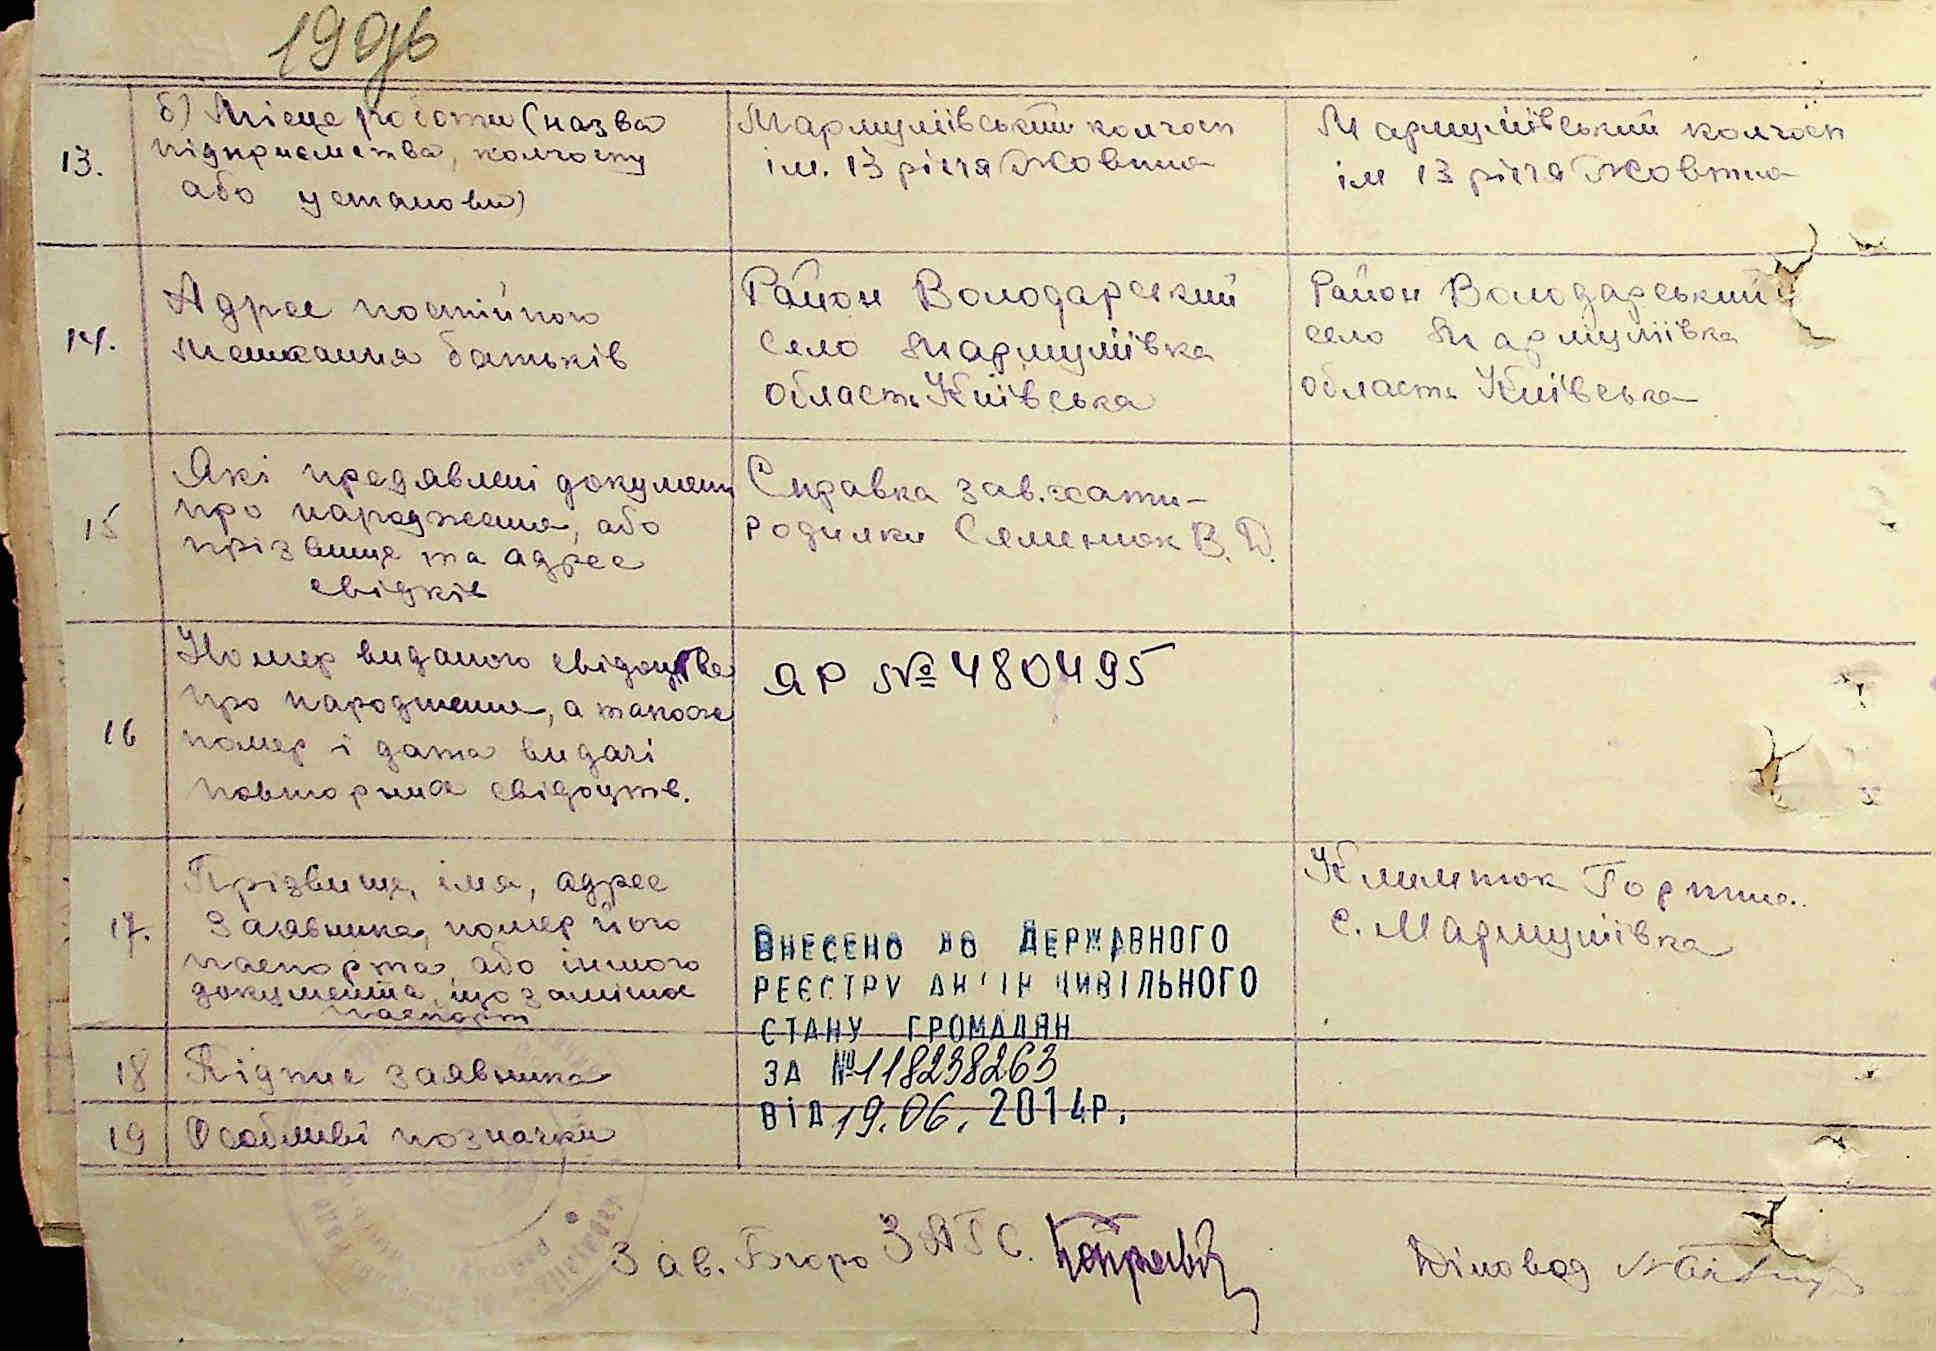 13.
б) Місце роботи (назва
підприємства, колгоспу
або установи)
Мармуліївський колгосп
ім. 13 річчя Жовтня
Мармуліївський колгосп
ім 13 річчя Жовтня
14.
Адрес постійного
мешкання батьків
Район Володарський
село Мармуліївка
область Київська
Район Володарський
село Мармуліївка
область Київська
15
Які предявлені документи
про народження, або
прізвище та адрес
свідків
Справка зав. хати-
родилки Семенюк В. Д.
16
Номер виданого свідоцтва
про народження, а також
номер і дата видачі
повторних свідоцтв.
ЯР № 480495
17.
Прізвище, імя, адрес
заявника, номер його
паспорта, або іншого
документа, що заміня
паспорт
Климнюк Горпина.
с. Мармуліївка
Внесено до Державного
реєстру актів цивільного
стану громадян
за № 118238263
від 19.06.2014р.
18
Підпис заявника
19
Особливі позначки
Зав. Бюро ЗАГС.
Діловод